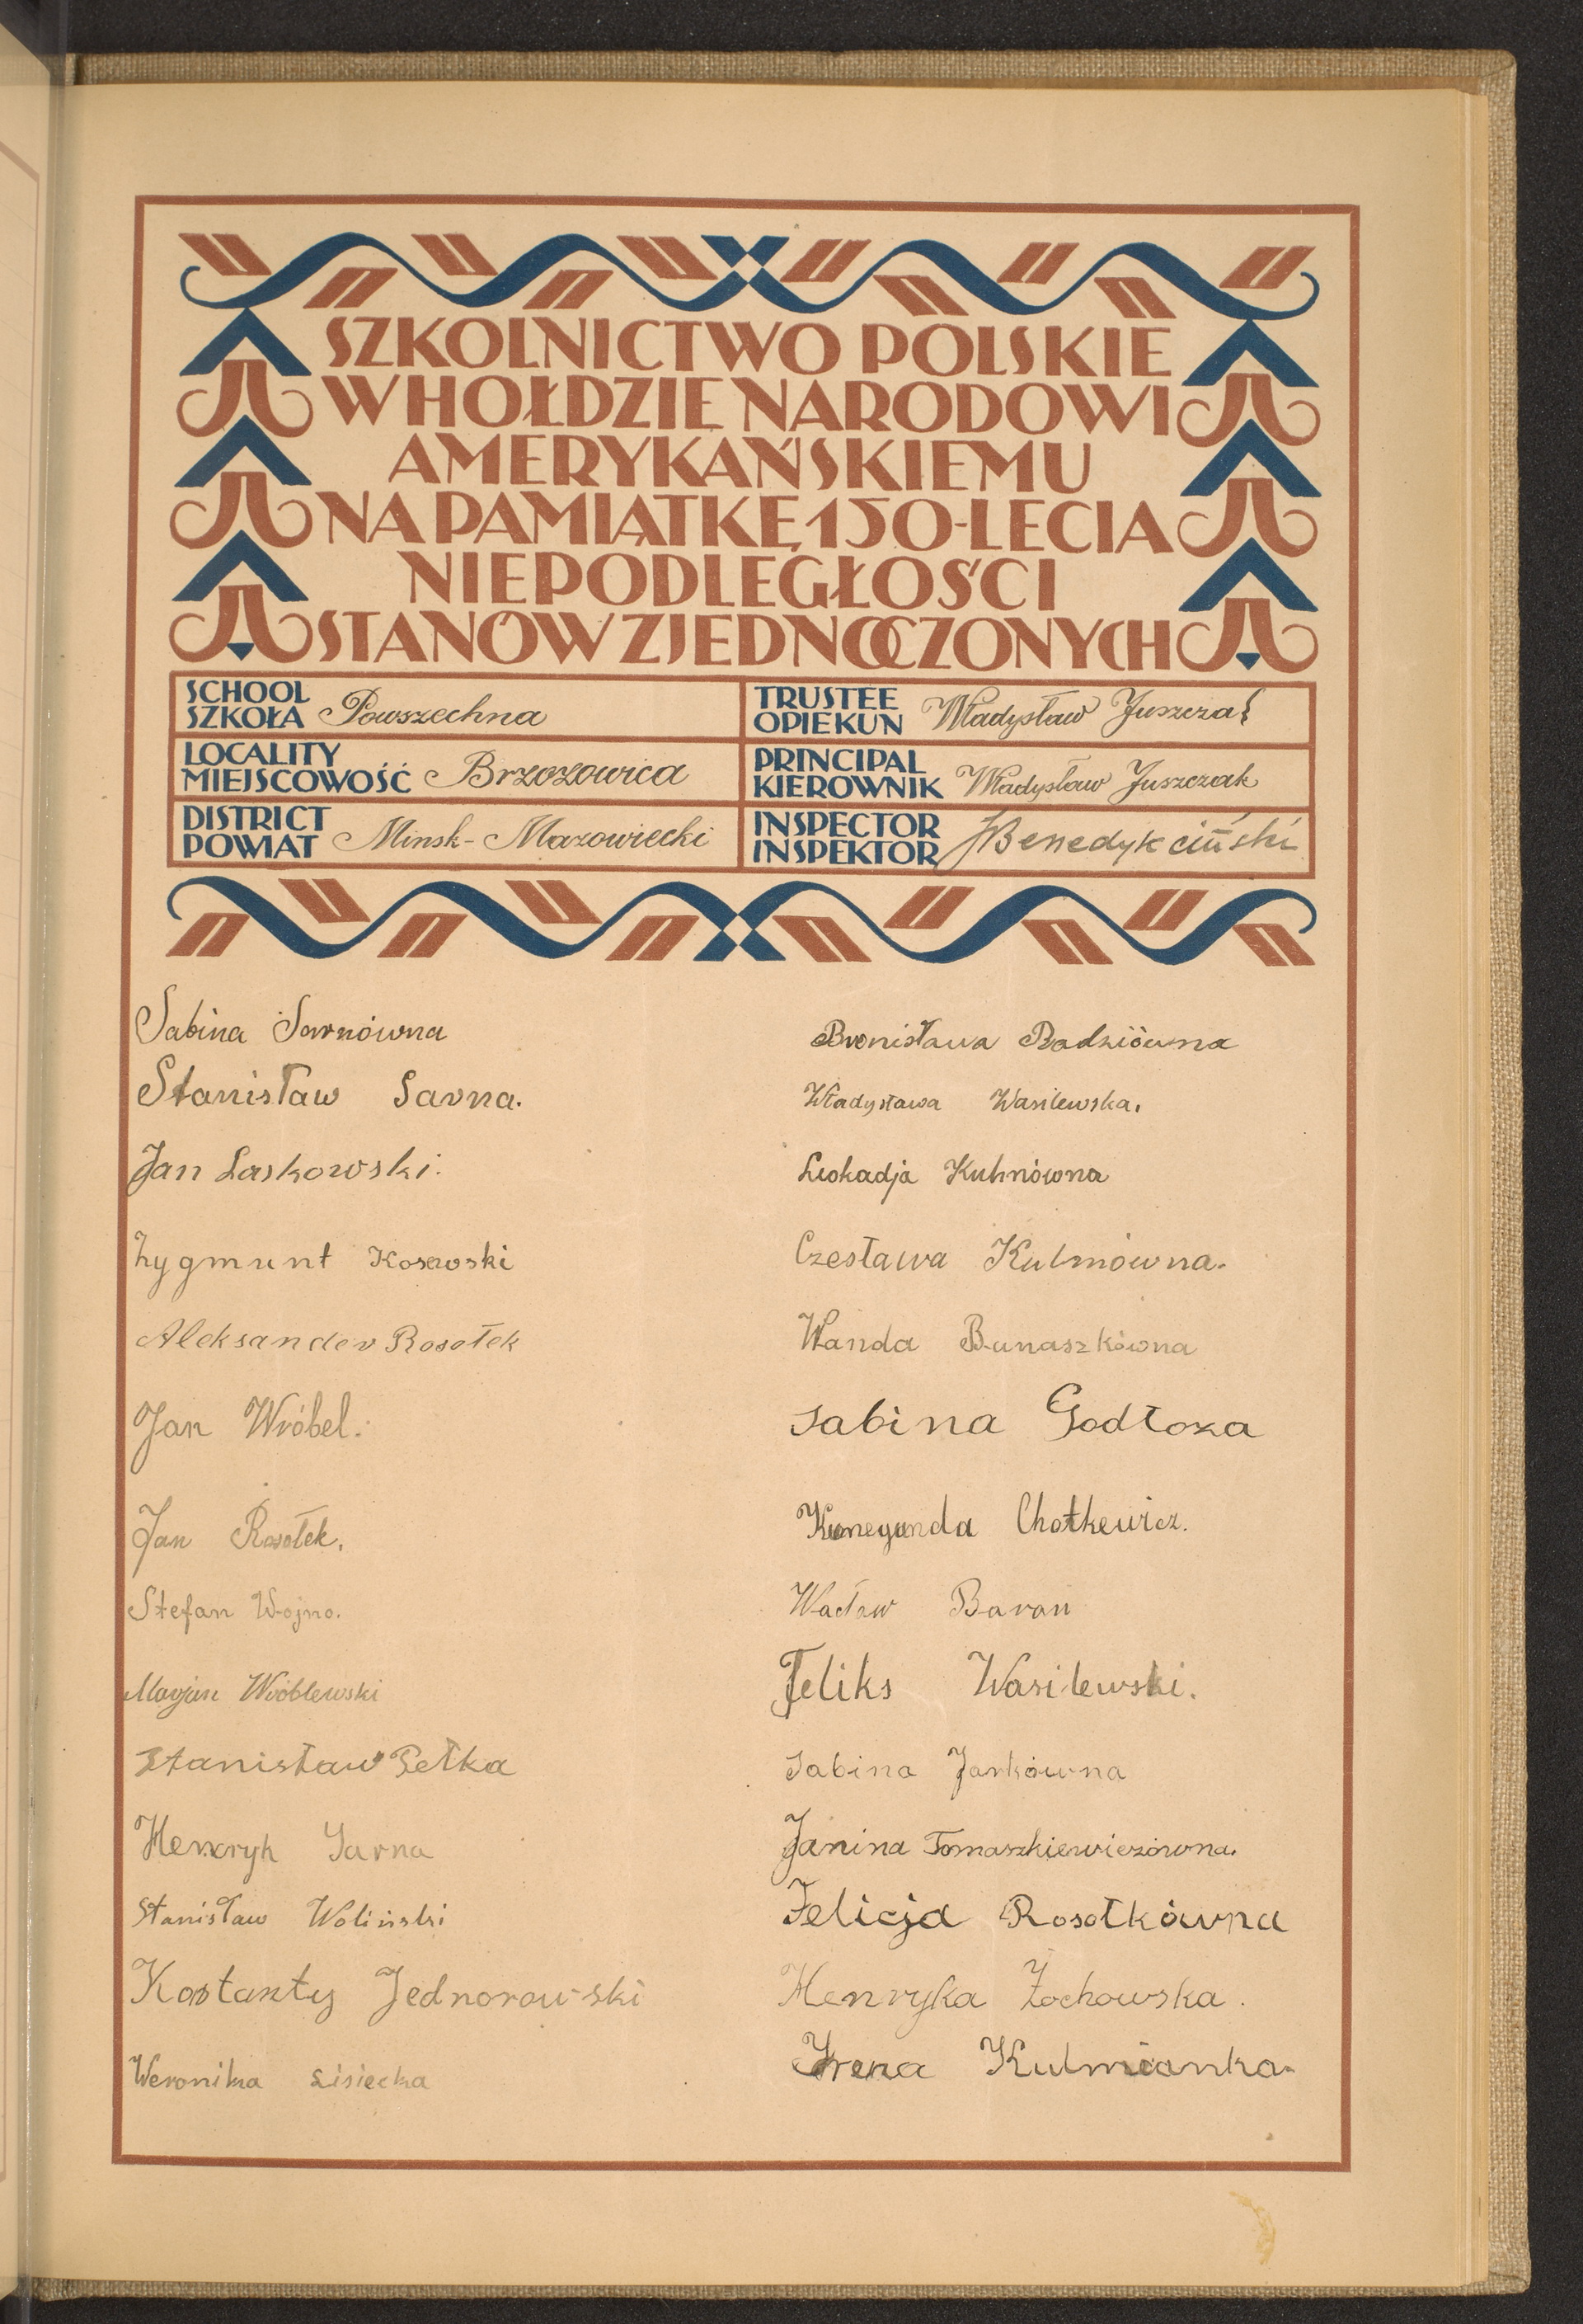 SZKOLNICTWO POLSKIE
W HOŁDZIE NARODOWI
AMERYKAŃSKIEMU
NA PAMIĄTKĘ 150-LECIA
NIEPODLEGŁOŚCI
STANÓW ZJEDNOCZONYCH
SCHOOL
SZKOŁA Powszechna
TRUSTEE
OPIEKUN Władysław Juszczak
LOCALITY
MIEJSCOWOŚĆ Brzozowica
PRINCIPAL
KIEROWNIK Władysław Juszczak
DISTRICT
POWIAT Minsk-Mazowiecki
INSPECTOR
INSPEKTOR JBenedykciński
Sabina Sarnówna
Stanisław Sarna.
Jan Laskowski.
Zygmunt Kosewski
Aleksander Rosołek
Jan Wróbel.
Jan Rosołek.
Stefan Wojno.
Marjan Wróblewski
Stanisław Pełka
Henryk Sarna
Stanisław Woliński
Kostanty Jednorowski
Weronika Lisiecka
Bronisława Radziówna
Władysława Wasilewska.
Leokadja Kulmówna
Czesława Kulmówna.
Wanda Bunaszkówna
Sabina Godłoza
Kunegunda Chołkewicz.
Wacław Baran
Feliks Wasilewski.
Sabina Jarkówna
Janina Tomaszkiewiczówna.
Felicja Rosołkówna
Henryka Żochowska.
Irena Kulmianka.